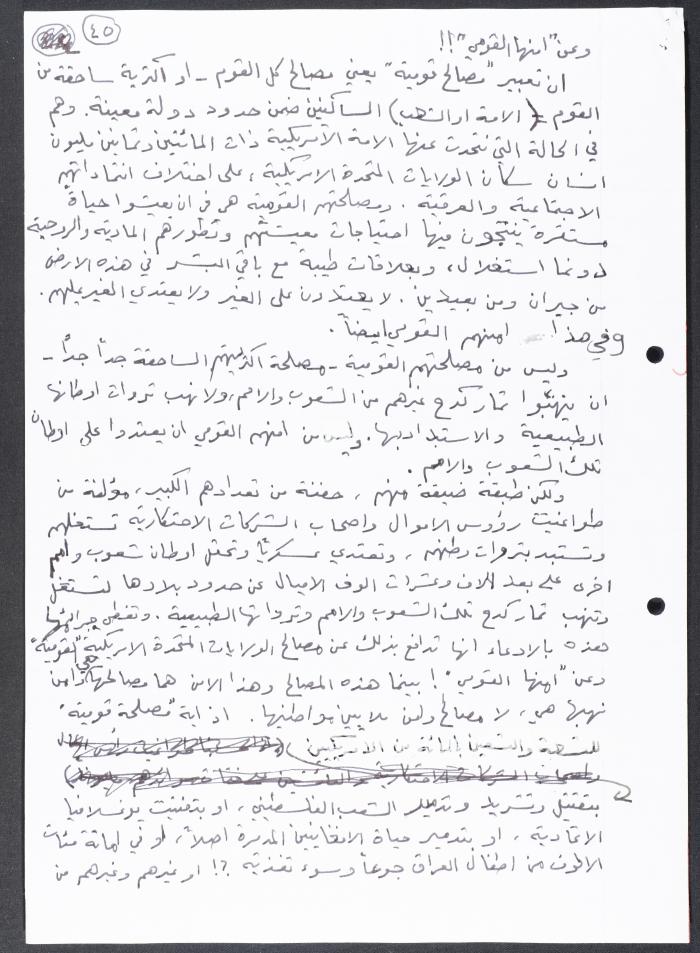 ٤٥
وعن "امنها القومي"!!
ان تعبير "مصالح قومية" يعني مصالح كل القوم - او اكثرية ساحقة من
القوم = (الامة او الشعب) الساكنين ضمن حدود دولة معينة. وهم
في الحالة التي نتحدث عنها الامة الامريكية ذات المائتين وثمانين مليون
انسان سكان الولايات المتحدة الامريكية، على اختلاف انتماءاتهم
الاجتماعية والعرقية. ومصلحتهم القومية هي في ان يعيشوا حياة
مستقرة ينتجون فيها احتياجات معيشتهم وتطورهم المادية والروحية
دونما استغلال، وبعلاقات طيبة مع باقي البشر في هذه الارض
من جيران ومن بعيدين. لا يعتدون على الغير ولا يعتدي الغير عليهم.
وفي هذا امنهم القومي ايضاً.
وليس من مصلحتهم القومية - مصلحة اكثريتهم الساحقة جداً جداً -
ان ينهبوا ثمار كدح غيرهم من الشعوب والامم، ولا نهب ثروات اوطانها
الطبيعية والاستبداد بها. وليس من امنهم القومي ان يعتدوا على اوطان
تلك الشعوب والامم.
ولكن طبقة ضيقة منهم، حفنة من تعدادهم الكبير، مؤلفة من
طواغيت رؤوس الاموال واصحاب الشركات الاحتكارية تستغلهم
وتستبد بثروات وطنهم، وتعتدي عسكرياً وتحتل اوطان شعوب وامم
اخرى على بعد آلاف وعشرات الوف الاميال عن حدود بلادها لتستغل
وتنهب ثمار كدح تلك الشعوب والامم وثرواتها الطبيعية. وتغطي جرائمها
هذه بالادعاء انها تدافع بذلك عن مصالح الولايات المتحدة الامريكية "القومية"
وعن "امنها القومي"! بينما هذه المصالح وهذا الامن هما مصالحها هي وامن
نهبها هي، لا مصالح وامن ملايين مواطنيها. اذ اية "مصلحة قومية"
للتسعة والتسعين بالمائة من الامريكيين
بتقتيل وتشريد وتذليل الشعب الفلسطيني، او بتفتيت يوغسلافيا
الاتحادية، او بتدمير حياة الافغانيين المدمرة اصلاً، او في اماتة مئات
الالوف من اطفال العراق جوعاً وسوء تغذية ?! او غيرهم وغيرهم من